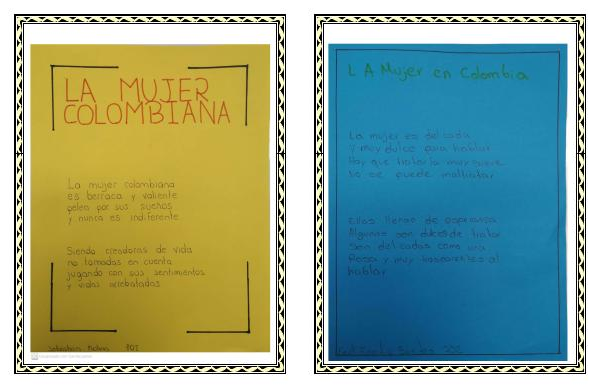 LA MUJER
COLOMBIANA
La mujer colombiana
es berraca y valiente
pelea por sus sueños
y nunca es indiferente
Siendo creadoras de vida
no tomadas en cuenta
jugando con sus sentimientos
y vidas arrebatadas
Sebastian Molina 801
LA Mujer en Colombia
La mujer es delicada
y muy dulce para hablar
Hay que tratarla muy suave
no se puede maltratar
Ellas llenas de
Algunas son de tratar
Son delicadas como una
y muy al
hablar